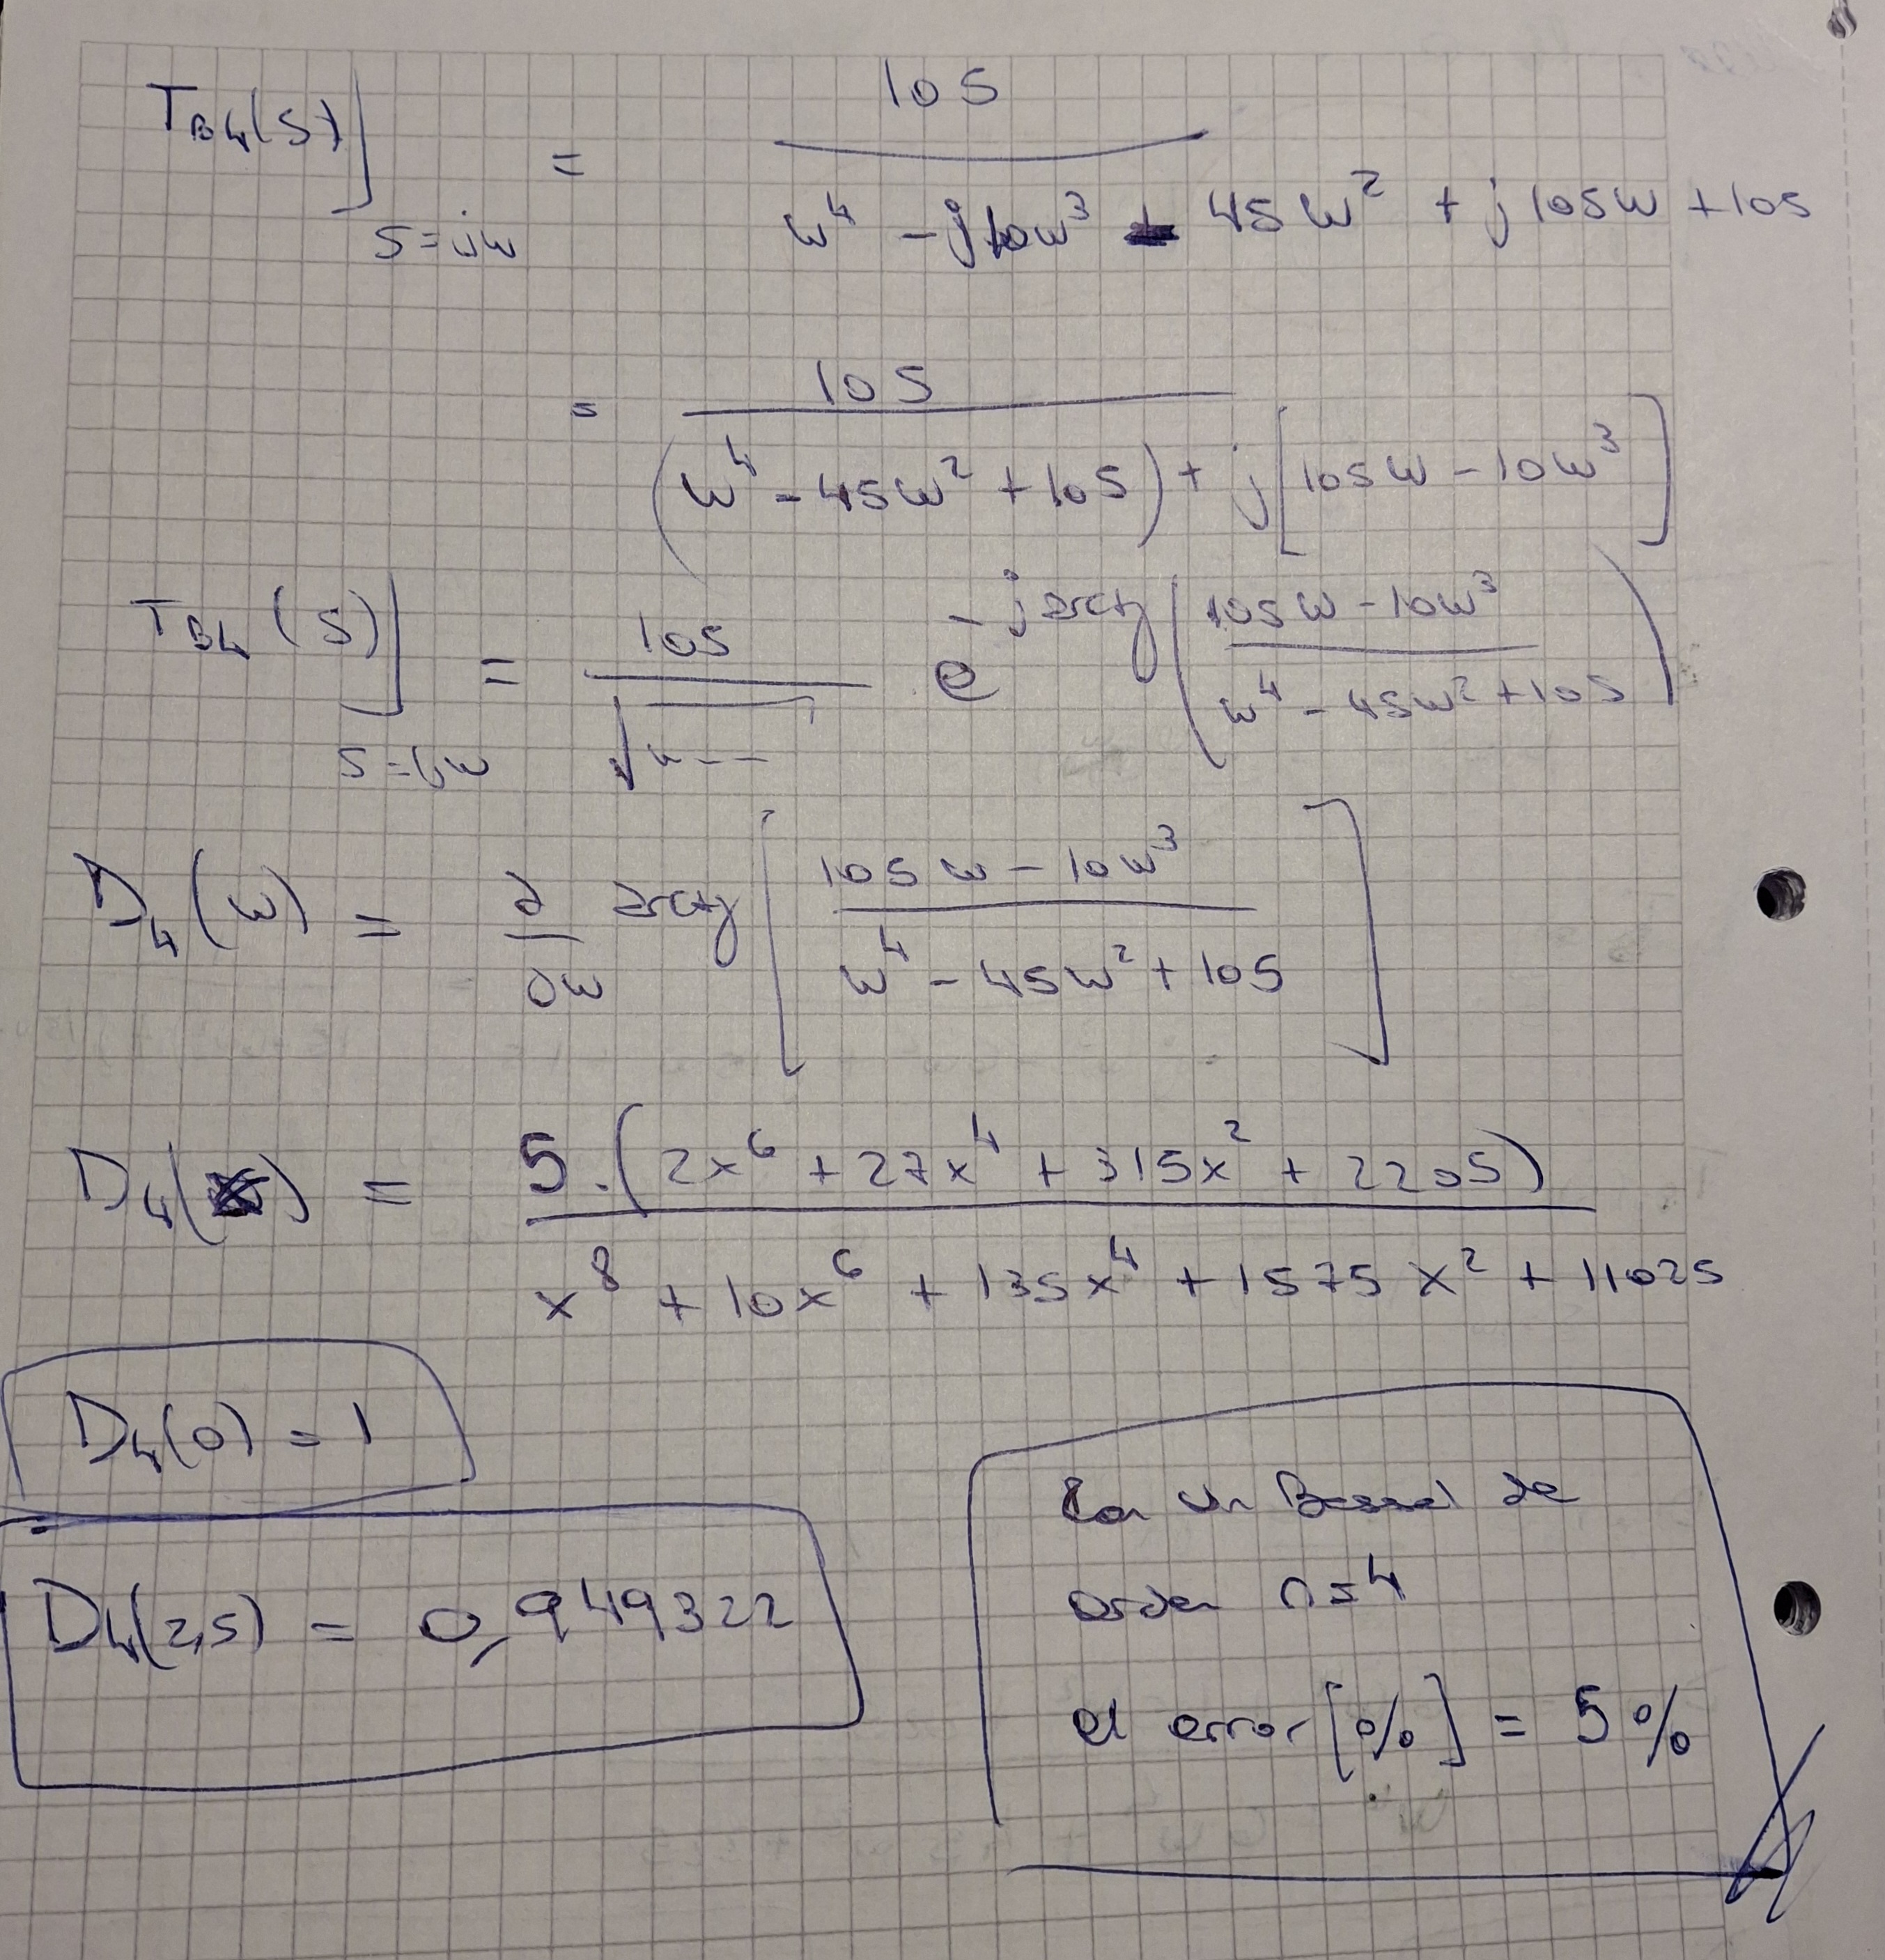 T_B4(S)]_{S=jω} = 105 / (ω⁴ - j10ω³ - 45ω² + j105ω + 105)
= 105 / ((ω⁴ - 45ω² + 105) + j[105ω - 10ω³])
T_B4(S)]_{S=jω} = 105 / √(ω---) · e^{-j arctg((105ω - 10ω³) / (ω⁴ - 45ω² + 105))}
D₄(ω) = ∂/∂ω arctg[(105ω - 10ω³) / (ω⁴ - 45ω² + 105)]
D₄( ) = 5·(2x⁶ + 27x⁴ + 315x² + 2205) / (x⁸ + 10x⁶ + 135x⁴ + 1575x² + 11025)
D₄(0) = 1
D₄(2,5) = 0,949322
Con un Bessel de
orden n=4
el error[%] = 5%